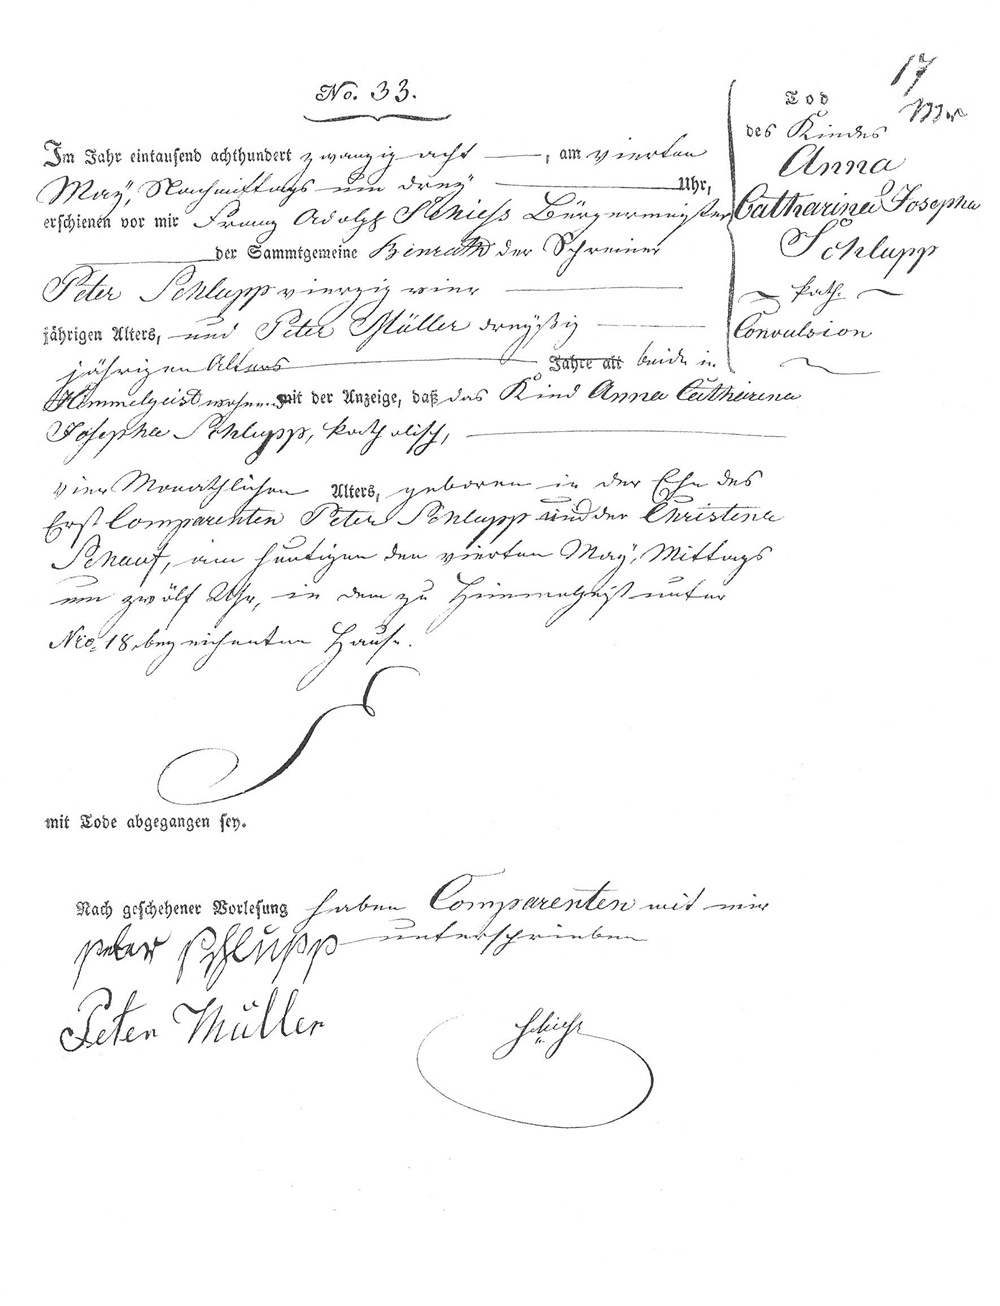 17
No. 33.
Tod
des Kindes
Anna
Catharina Josepha
Schlupp
kath.
Convulsion
Im Jahr eintausend achthundert zwanzig acht, am vierten
May, Nachmittags um drey Uhr,
erschienen vor mir Franz Adolph Schiess Bürgermeister
der Sammtgemeine Benrath der Schreiner
Peter Schlupp vierzig vier
jährigen Alters, und Peter Müller dreyßig
jährigen Alters Jahre alt beide in
Himmelgeist wohnend mit der Anzeige, daß das Kind Anna Catharina
Josepha Schlupp, katholisch,
vier Monathlichen Alters, geboren in der Ehe des
Erst Comparenten Peter Schlupp und der Christina
Schauf, am heutigen den vierten May, Mittags
um zwölf Uhr, in dem zu Himmelgeist unter
Nro. 18 bezeichneten Hause.
mit Tode abgegangen sey.
Nach geschehener Vorlesung haben Comparenten mit mir
unterschrieben
Peter Schlupp
Peter Müller
Schiess